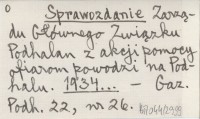 o
Sprawozdanie Zarzą-
du Głównego Związku
Podhalan z akcji pomocy
ofiarom powodzi na Pod-
halu. 1934... — Gaz.
Podh. 22, nr 26.